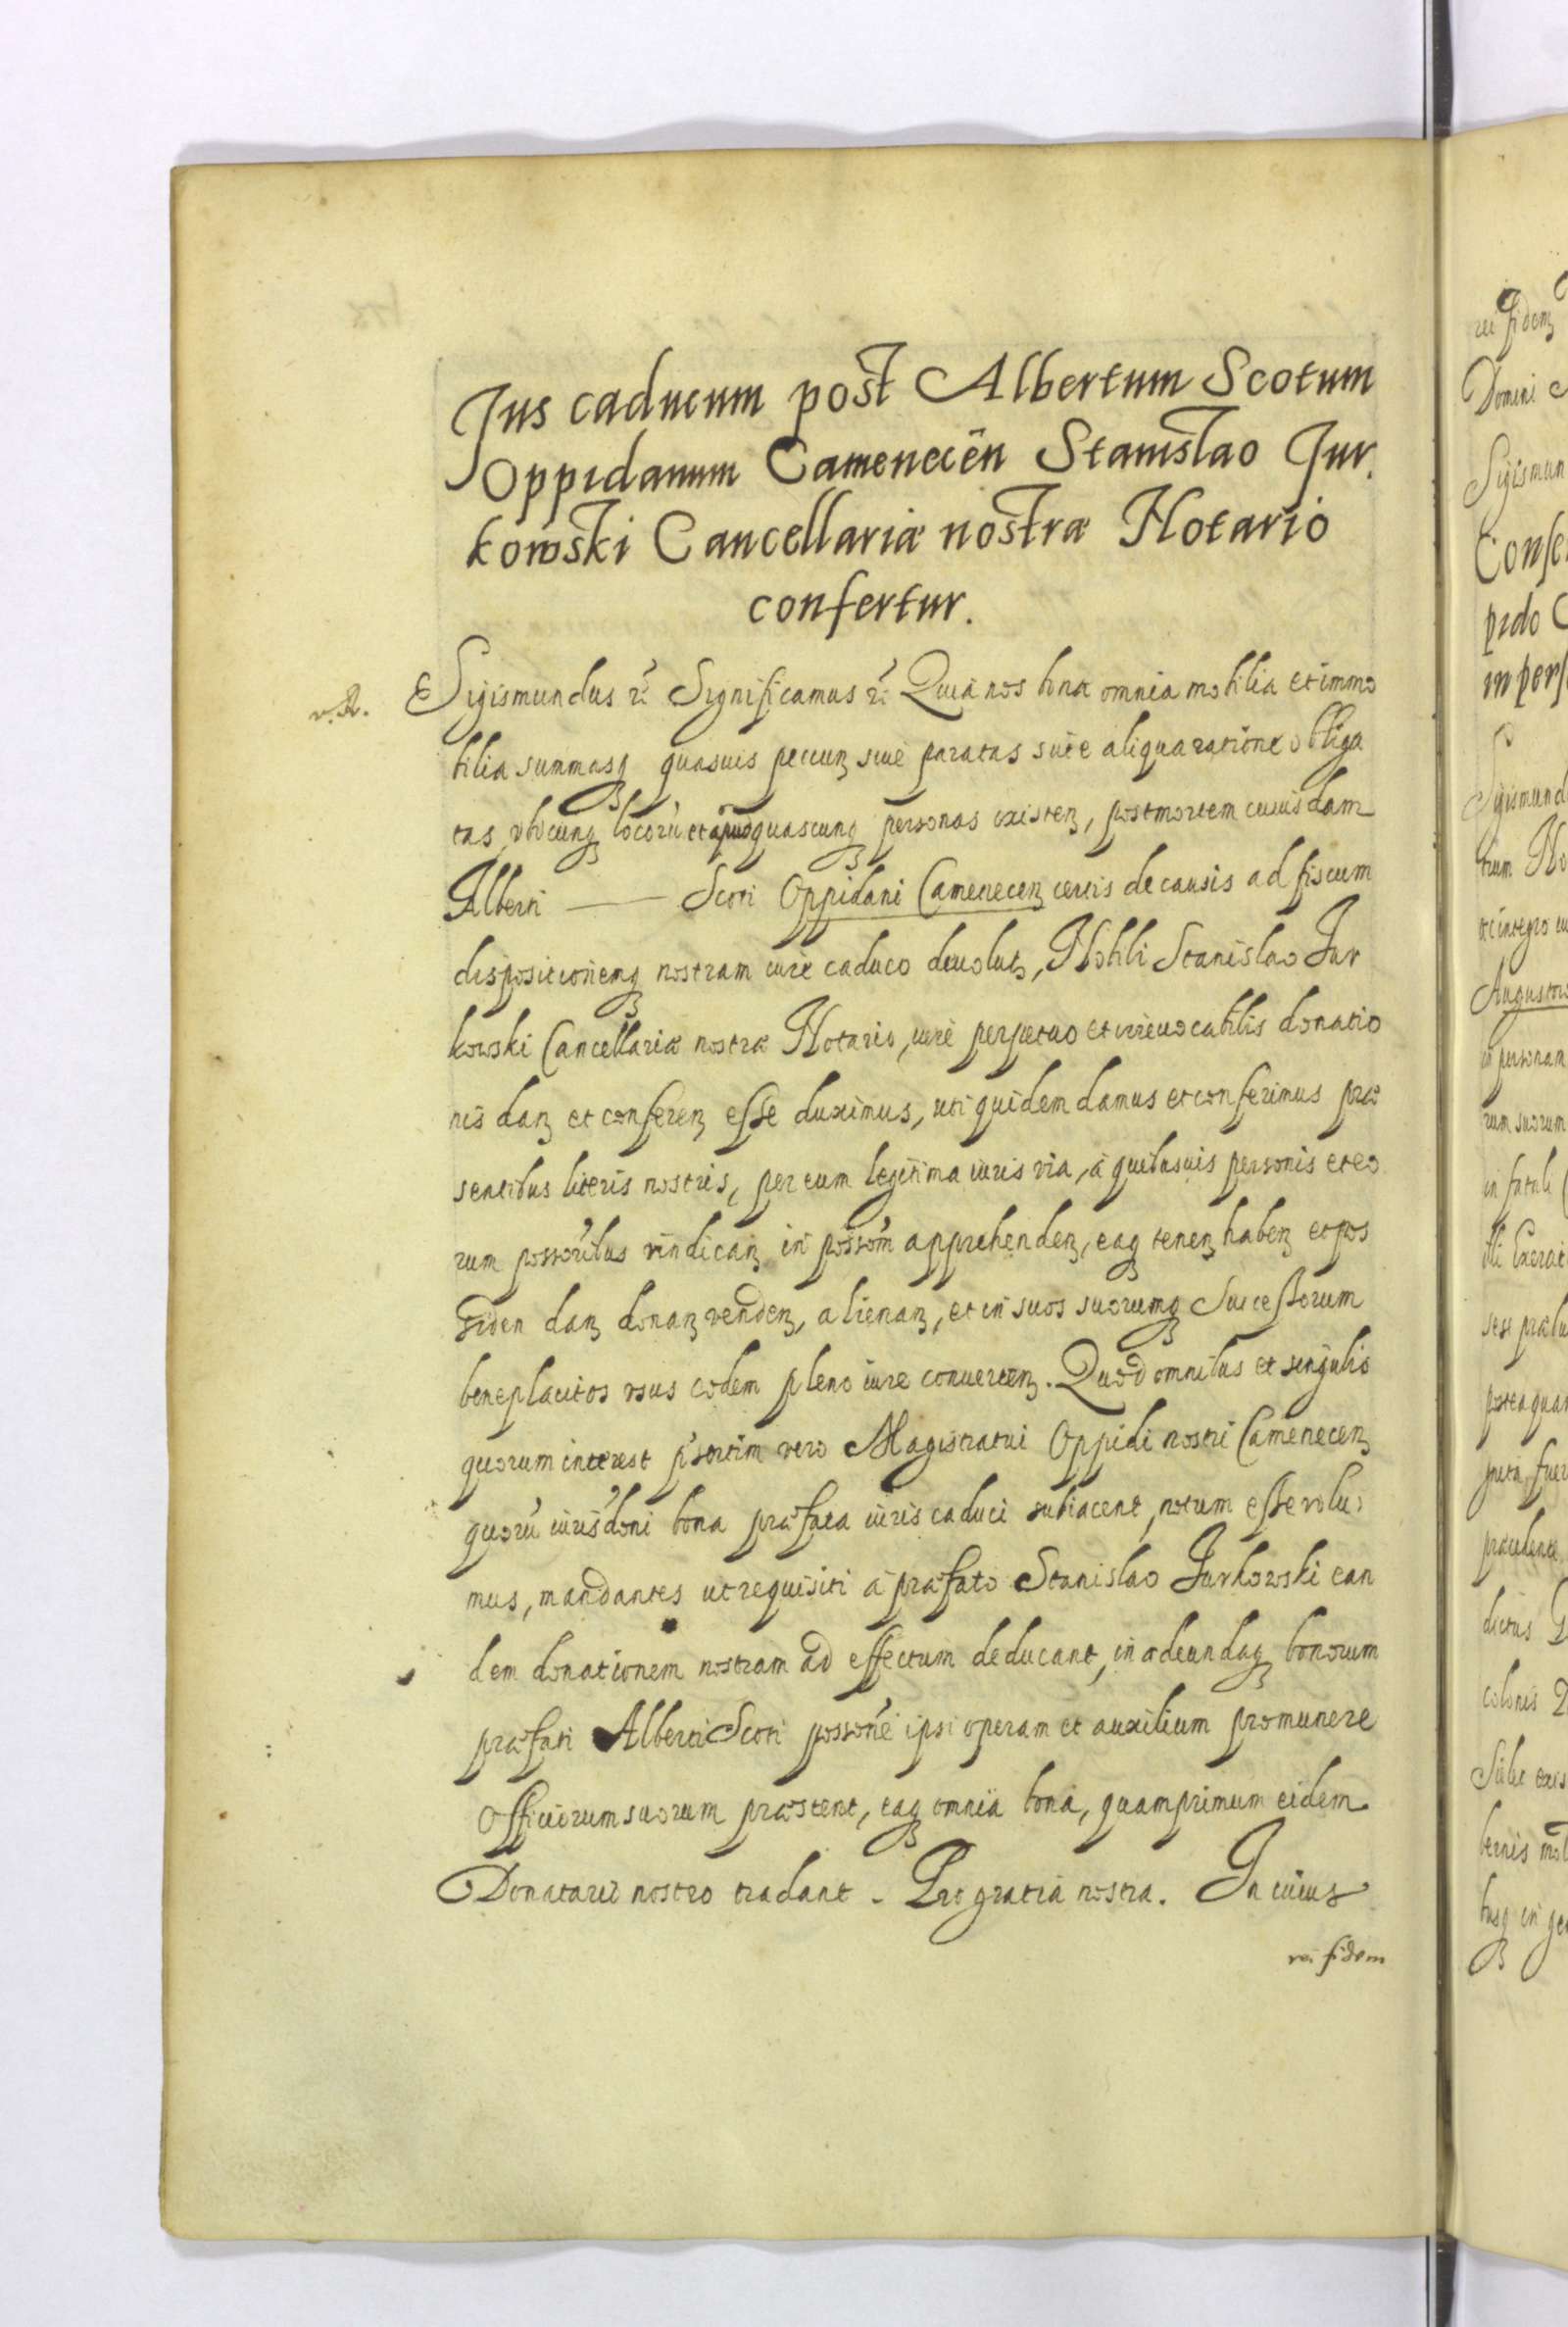 Jus caducum post Albertum Scotum
Oppidanum Camenecēn Stanislao Jur.
kowski Cancellariæ nostræ Notario
confertur.
Sigismundus &c. Significamus &c. Quia nos bona omnia mobilia et immo
v. R.
bilia summasq quasuis pecun siue paratas siue aliqua ratione obliga
tas, vbicunq locorū et apud quascunq personas existen, post mortem cuiusdam
Alberti —— Scoti Oppidani Camenecen certis de causis ad fiscum
dispositionemq nostram iure caduco deuolut, Nobili Stanislao Jur
kowski Cancellariæ nostræ Notario, iure perpetuo et irreuocabilis donatio
nis dan et conferen esse duximus, uti quidem damus et conferimus præ
sentibus literis nostris, per eum legitima iuris via, a quibusuis personis et eo
rum possoribus vindican in possom apprehenden, eaq tenen haben et pos
siden dan donan venden, alienan, et in suos suorumq Successorum
beneplacitos vsus eodem pleno iure conuerten. Quod omnibus et singulis
quorum interest p'sertim vero Magistratui Oppidi nostri Camenecen
quorū iurisdoni bona præfata iuris caduci subiacent, notum esse volu
mus, mandantes ut requisiti a præfato Stanislao Jurkowski ean
dem donationem nostram ad effectum deducant, in adeundaq bonorum
præfati Alberti Scoti possone ipsi operam et auxilium pro munere
Officiorum suorum præstent, eaq omnia bona, quamprimum eidem
Donatario nostro tradant. Pro gratia nostra. In cuius
rei fidem
rei fidem
Domini
Sigismun
Conse
pido C
in pers
Sigismund
trum No
et integro iu
Augustow
in personam
rum suorum
posteaquam
præcedente
dictus
colonis